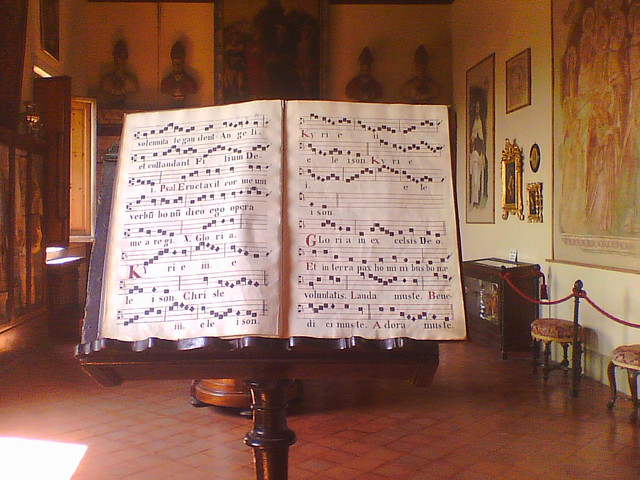 solemnita te gau dent An ge li.
et collaudant Fi lium De
i. Psal Eructavit cor me um
verbũ bo nũ dico ego opera
me a re gi. V. Glo ri a.
Ky ri e iii. e
le i son Chri ste
iii. e le i son.
Ky ri e ii
e le ison Ky ri e
i. e le
i son
Glo ri a in ex celsis De o
Et in terra pax ho mi ni bus bo næ
voluntatis. Lauda muste. Bene
di ci muste. A dora muste.